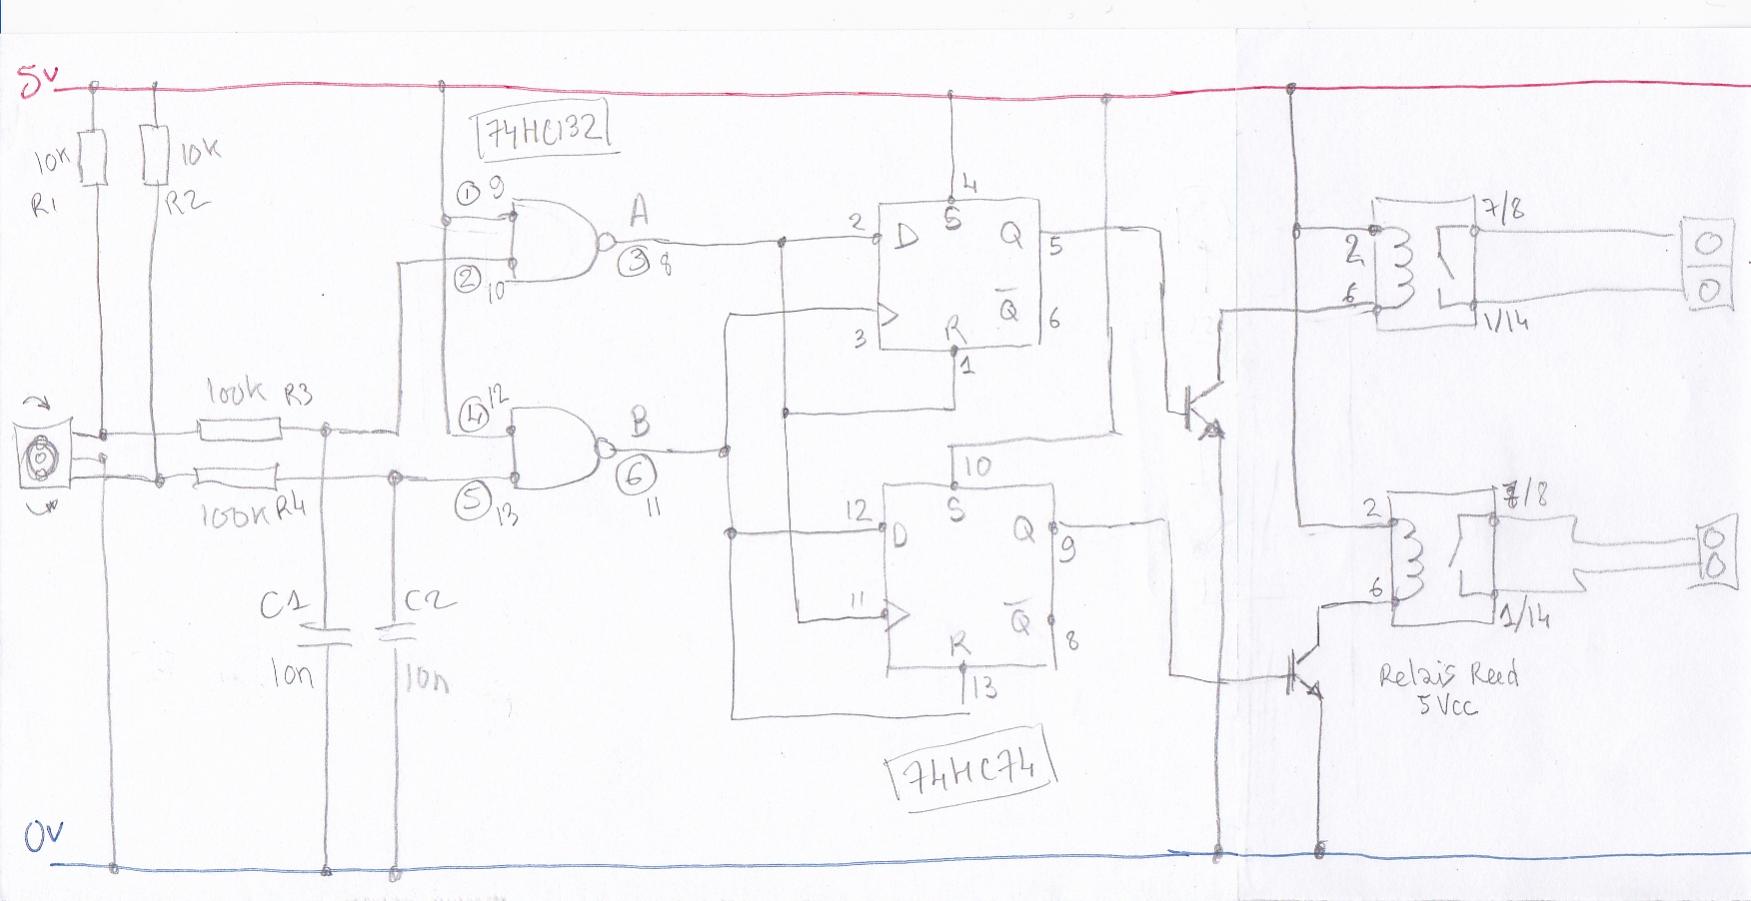 5V
10K
R1
10K
R2
74HC132
① 9
② 10
A
③ 8
④ 12
⑤ 13
B
⑥
11
100K R3
100K R4
C1
10n
C2
10n
4
S
2
D
Q
5
3
R
Q̅
6
1
10
S
12
D
Q
9
11
R
Q̅
8
13
74HC74
2
6
7/8
1/14
2
6
7/8
1/14
Relais Reed
5Vcc
0V